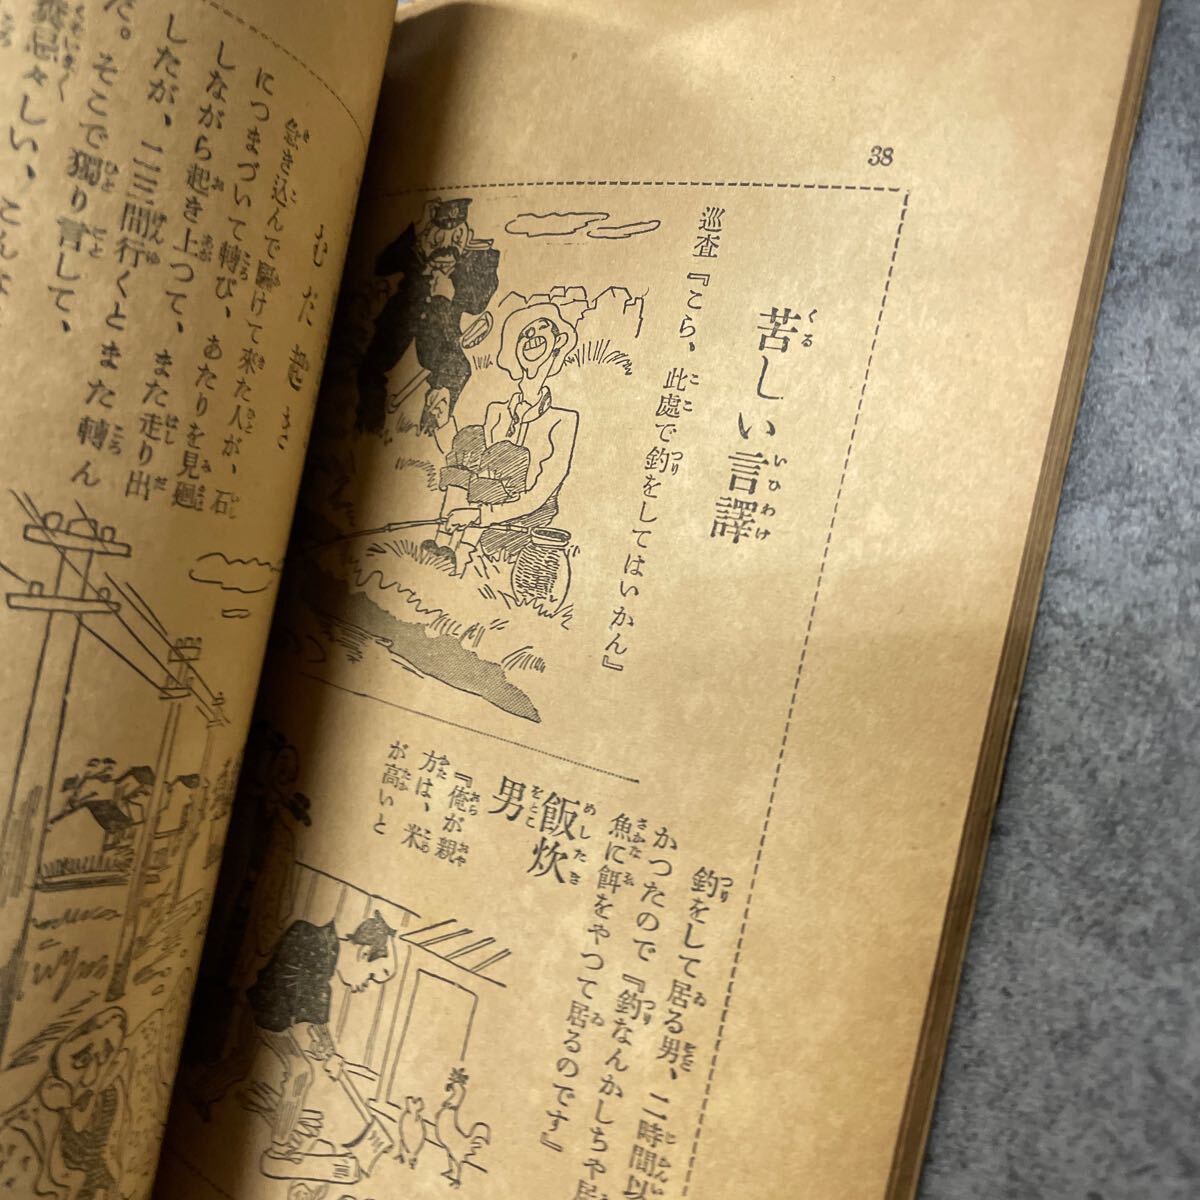 38
苦しい言譯
巡査『こら、此處で釣をしてはいかん』
釣をして居る男、二時間以
かつたので『釣なんかしちや居
魚に餌をやつて居るのです』
飯炊
男
『俺が親
方は、米
が高いと
むだ起き
急き込んで驅けて來た人が、石
につまづいて轉び、あたりを見廻
しながら起き上つて、また走り出
したが、二三間行くとまた轉ん
だ。そこで獨り言して、
々しい、こんな